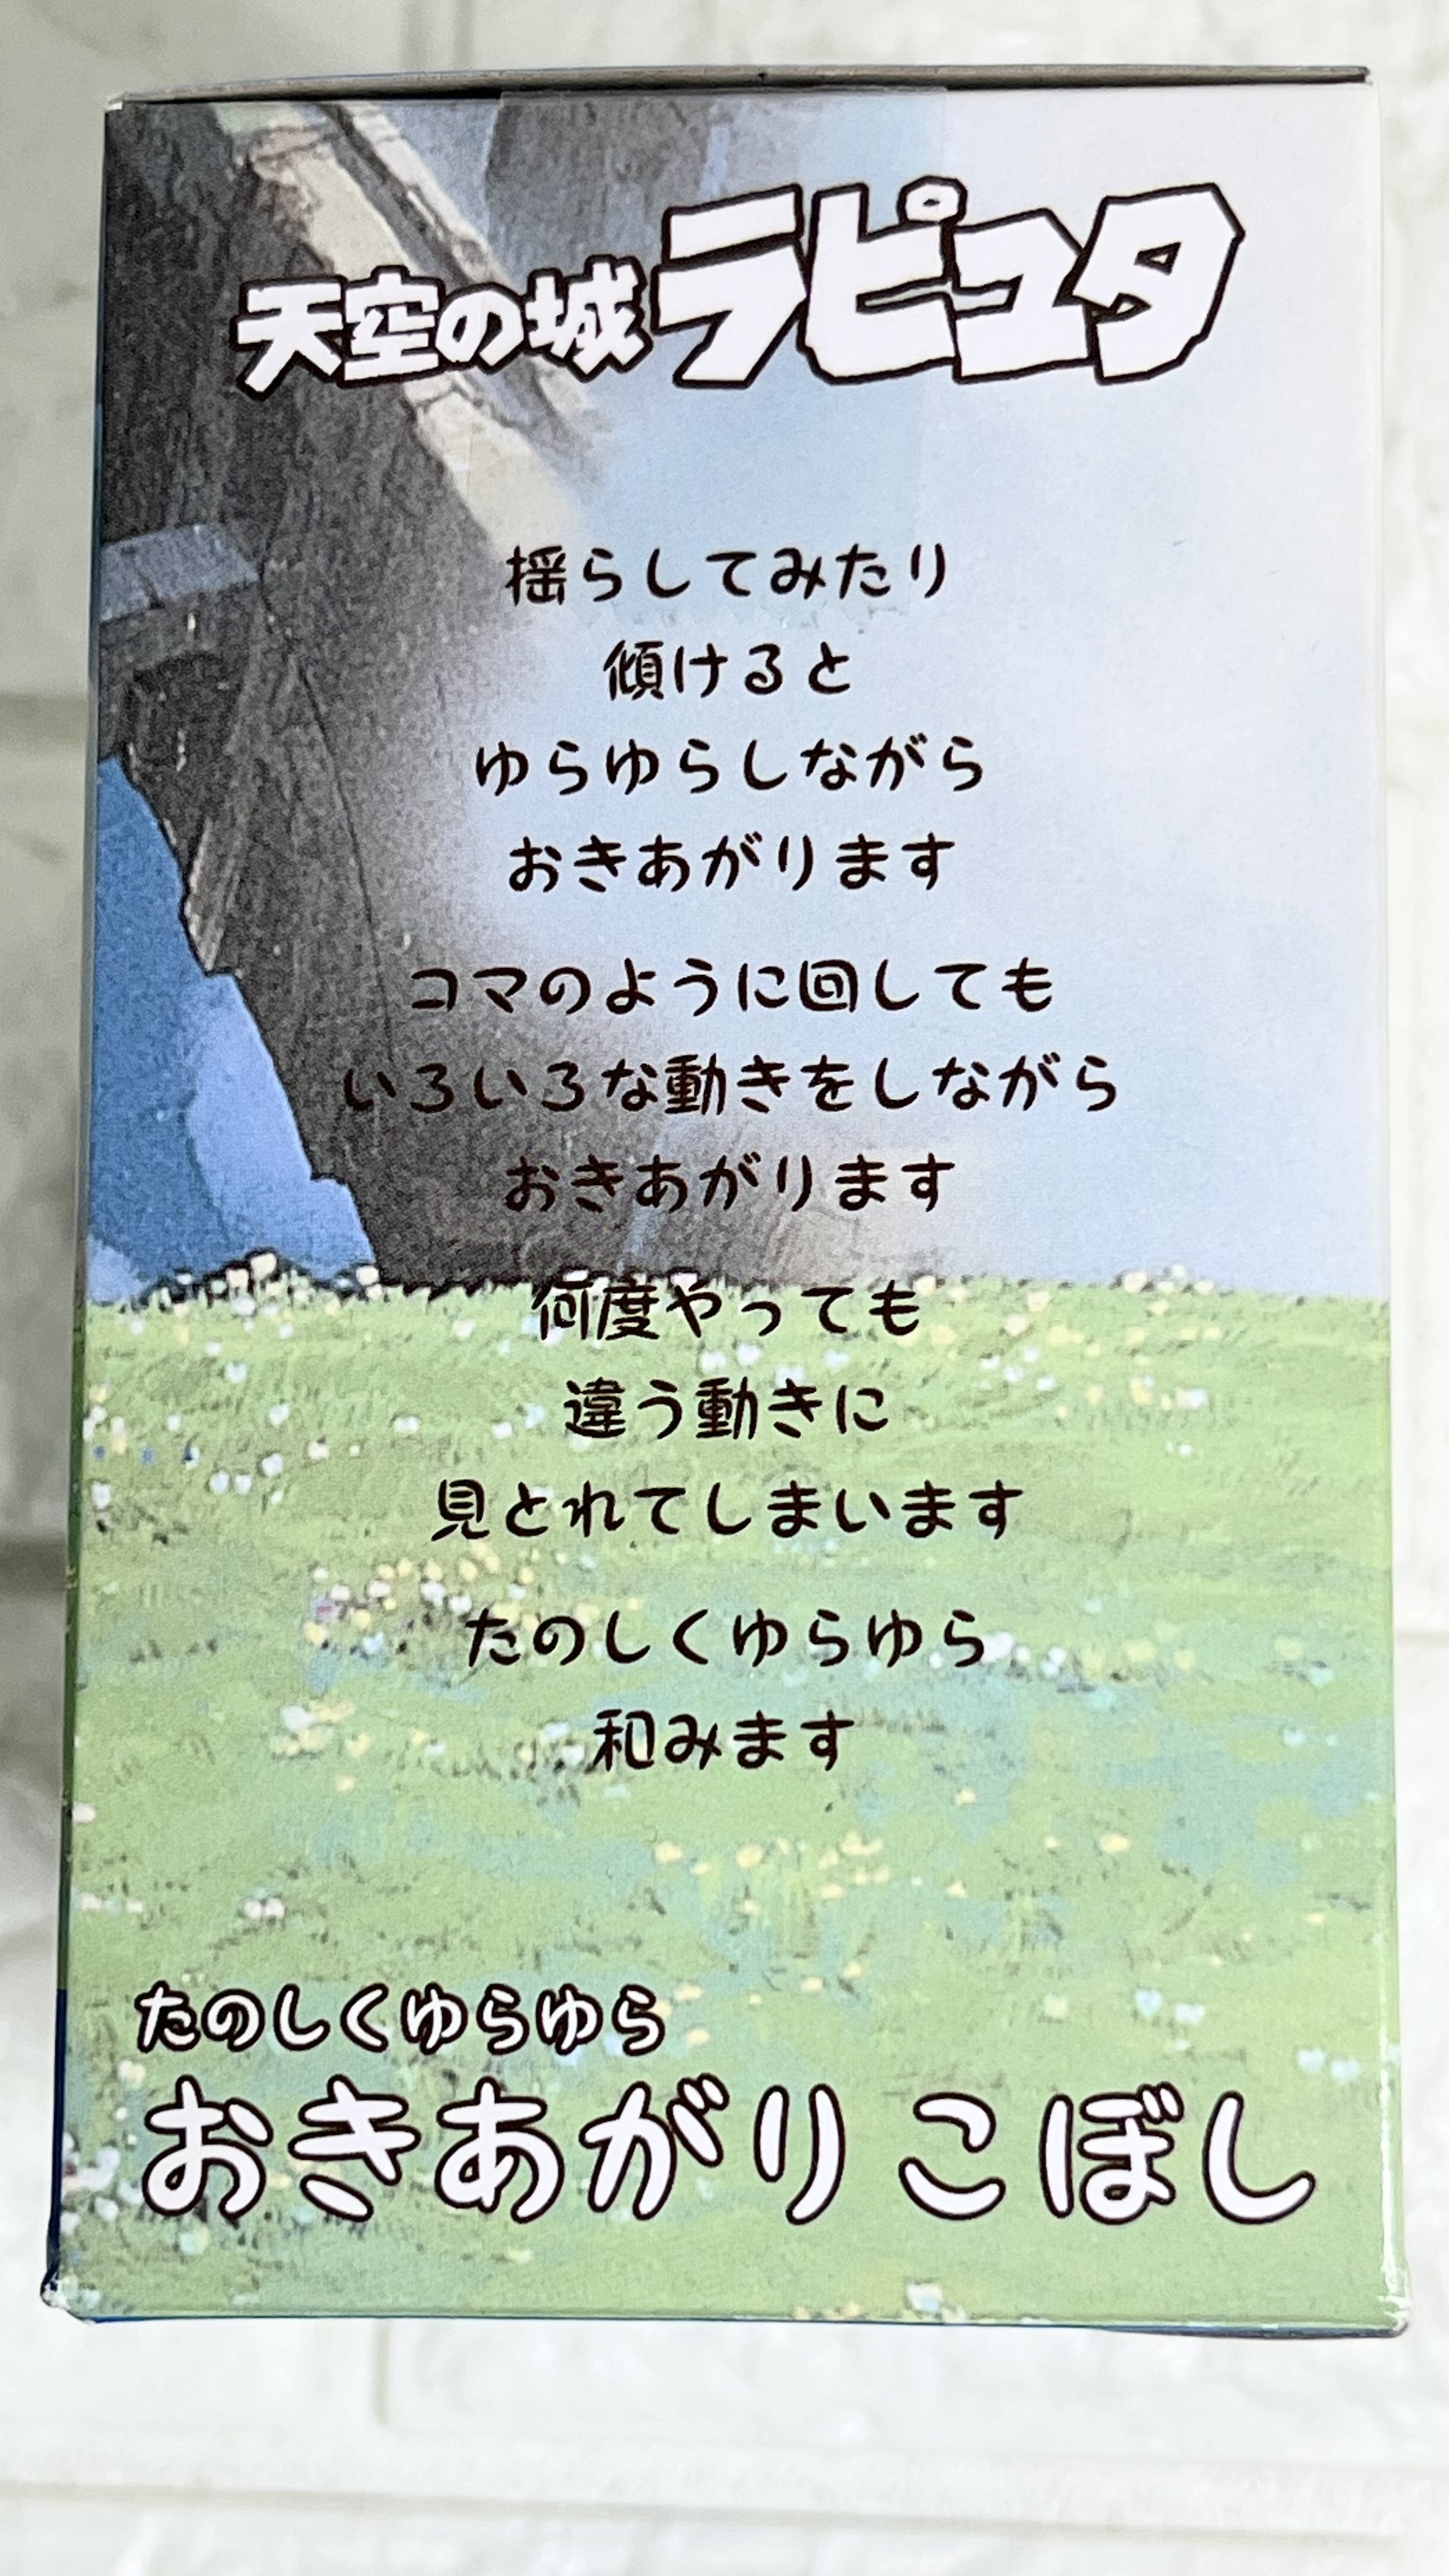 天空の城ラピュタ
揺らしてみたり
傾けると
ゆらゆらしながら
おきあがります
コマのように回しても
いろいろな動きをしながら
おきあがります
何度やっても
違う動きに
見とれてしまいます
たのしくゆらゆら
和みます
たのしくゆらゆら
おきあがりこぼし